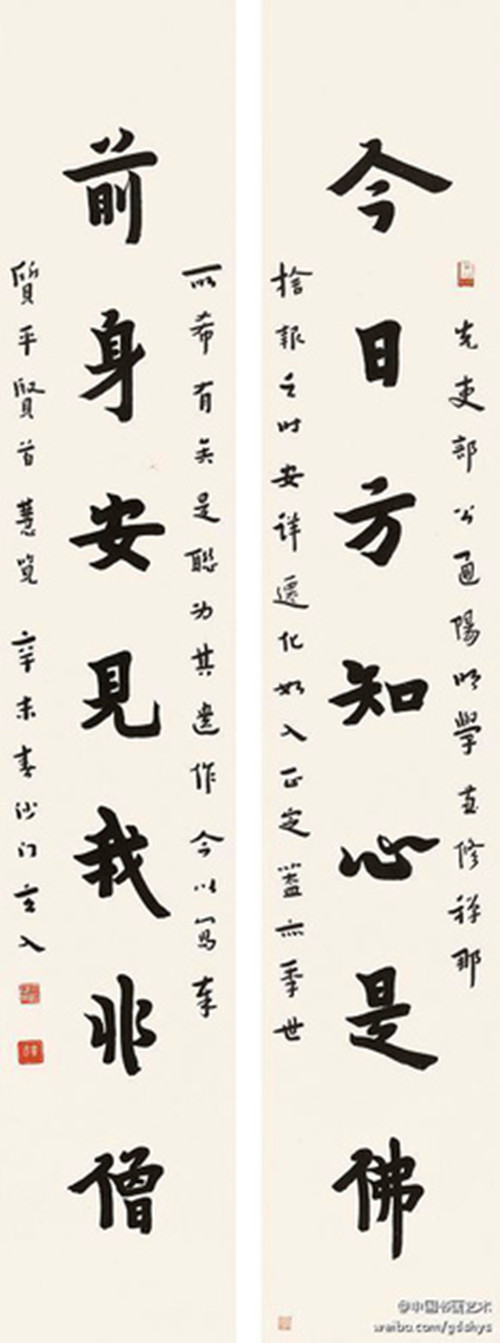 先吏部公通陽明學兼修禪那
今日方知心是佛
捨報之時安詳遷化如入正定蓋亦季世
所希有矣是聯為其遺作今以寫奉
前身安見我非僧
質平賢首慧覽 辛未春沙门玄入
@中国书画艺术
weibo.com/gdshys